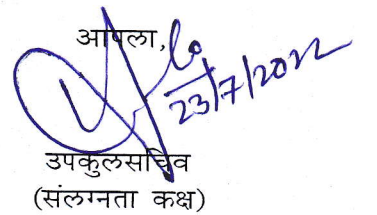 आपला,
23/7/2022
उपकुलसचिव
(संलग्नता कक्ष)